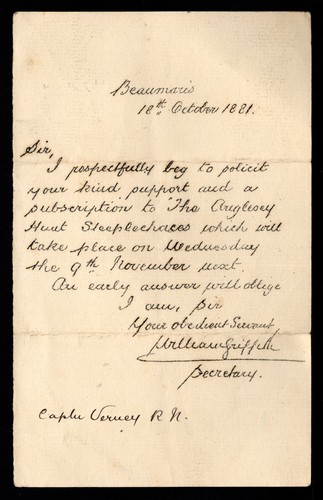 Beaumaris
18th October 1881.
Sir,
I respectfully beg to solicit
your kind support and a
subscription to The Anglesey
Hunt Steeplechases which will
take place on Wednesday
the 9th November next.
An early answer will oblige
I am, Sir
Your obedient Servant,
William Griffith
Secretary.
Captn Verney R N.